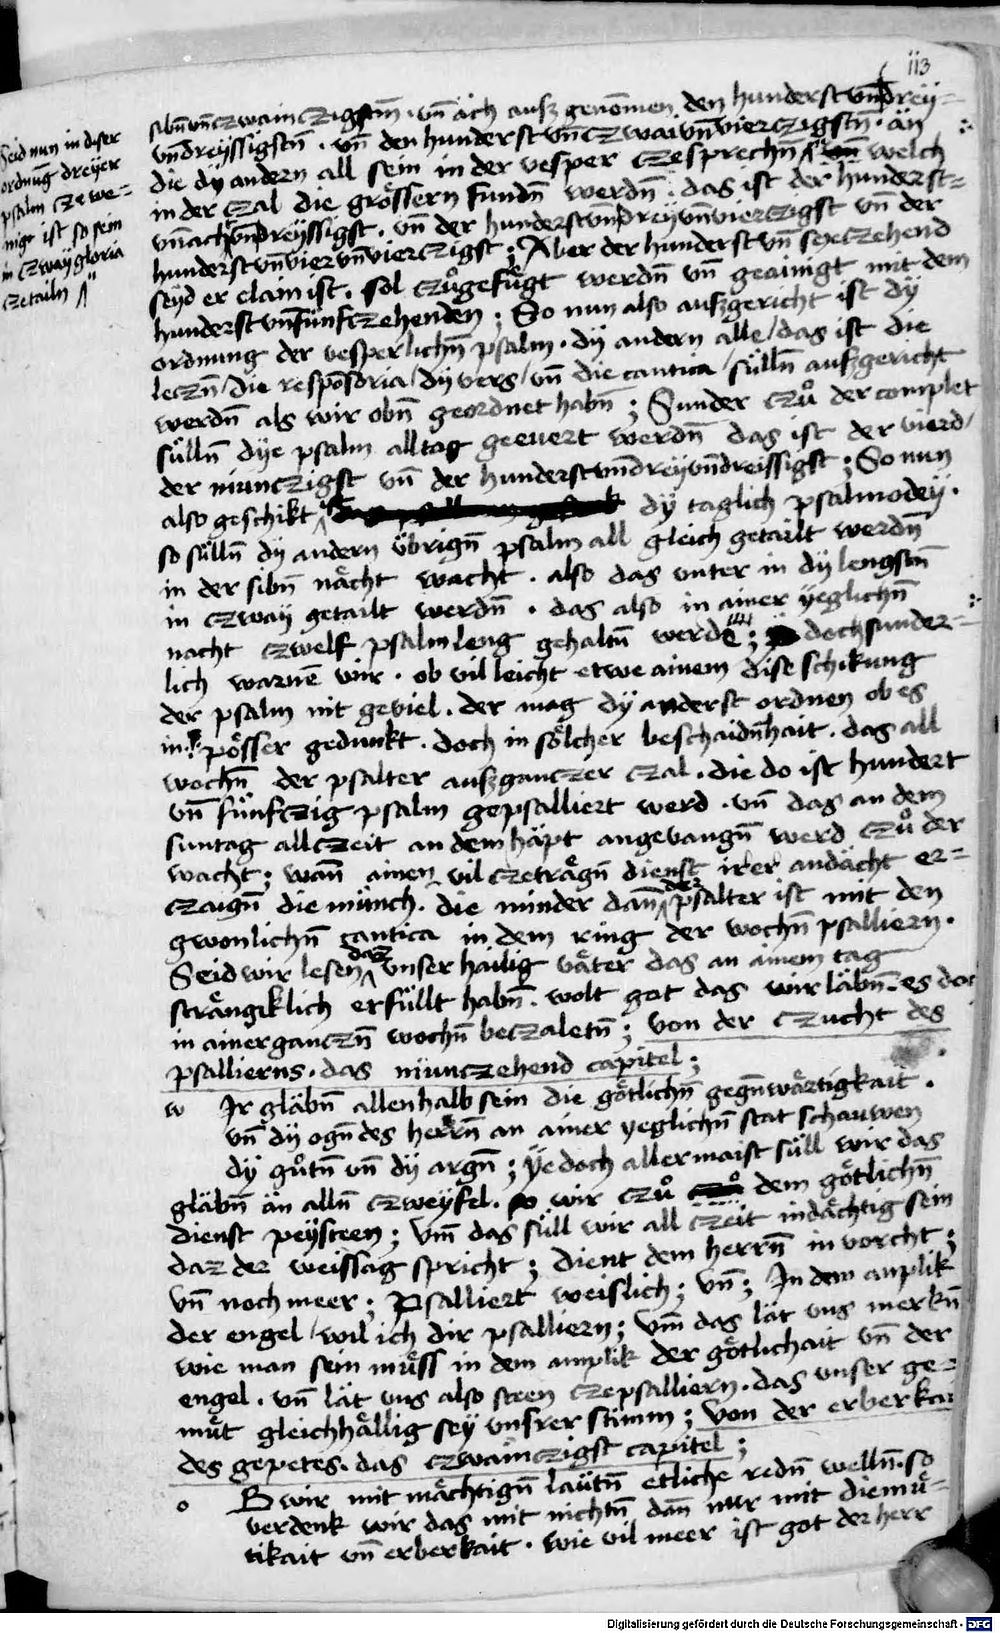 113
Seid nun in diser
ordnūg dreyer
psalm cze we-
nige ist so sein
in czway gloria
czetailn
sibn̄ vn̄ czwainczigstn̄ . vn̄ äch ausz genōmen den hunderst vn̄ dreÿ-
vn̄dreÿssigstn̄ . vn̄ den hunderst vn̄ czwai vn̄ vierczigstn̄ . än
die dÿ andern all sein in der vesper czesprechn̄ welch
in der czal die grössern fundn̄ werdn̄ . das ist der hunderst-
vn̄achvn̄dreÿssigst . vn̄ der hunderst vn̄dreÿvn̄vierczigst vn̄ der
hunderst vn̄ vier vn̄ vierczigst ; Aber der hunderst vn̄ sexczehend
seyd er clam ist . sol czůgefügt werdn̄ vn̄ geainigt mit dem
hunderst vn̄ fünfczehenden ; So nun also auszgericht ist dÿ
ordnung der vesperlichn̄ psalm . dÿ andern alle / das ist die
leczn̄ / die respōsoria / dÿ vers / vn̄ die cantica / süllñ auszgericht
werdn̄ als wir obn̄ geordnet habn̄ ; Sunder czů der complet
süllñ dÿe psalm alltag geeuert werdn̄ das ist der vierd /
der niunczigst vn̄ der hunderst vn̄dreÿvn̄dreissigst ; So nun
also geschikt dÿ taglich psalmodeÿ .
so süllñ dÿ andern übrign̄ psalm all gleich getailt werdn̄
in der sibn̄ nächt wacht . also das vnter in dÿ lengstn̄
in czway getailt werdn̄ . das also in ainer yeglichn̄
nacht czwelf psalm leng gehaltn̄ werde ; doch sunder-
lich warnē wir . ob villeicht etwe ainem dise schikung
der psalm nit geviel . der mag dÿ anderst ordnen ob es
in pösser gedunkt . doch in sölcher beschaidn̄hait . das all
wochn̄ der psalter ausz ganczer czal . die do ist hundert
vn̄ fünfczig psalm gepsalliert werd . vn̄ das an dem
suntag allczeit an dem häpt angevangn̄ werd czů der
wacht ; wan̄ ainen vil czeträgn̄ dienst irer andächt er-
czaign̄ die münch . die minder dan̄ der psalter ist mit den
gwonlichn̄ cantica in dem ring der wochn̄ psalliern .
Seid wir lesen daz vnser hailig väter das an ainem tag
strängklich erfüllt habn̄ . wolt got das wir läbn̄ es doch
in ainer ganczn̄ wochn̄ beczaletn̄ ; von der czucht des
psallierns . das niunczehend capitel ;
w Ir gläbn̄ allenhalb sein die götlichn̄ gegn̄wärtigkait .
vn̄ dÿ ogn̄ des herrn̄ an ainer yeglichn̄ stat schauwen
dÿ gůtn̄ vn̄ dÿ argn̄ ; Ÿedoch aller maist süll wir das
gläbn̄ än alln̄ czweyfel . so wir czů dem götlichn̄
dienst peÿsteen ; vm̄ das süll wir all czeit indächtig sein
daz der weissag spricht ; dient dem herrn̄ in vorcht ;
vn̄ noch meer ; Psalliert weislich ; vn̄ ; In dem anplik
der engel / wil ich dir psalliern ; vm̄ das lät vns merkn̄
wie man sein müss in dem anplik der götlichait vn̄ der
engel . vn̄ lät vns also steen czepsalliern . das vnser ge-
müt gleichhällig sey vnsrer stimm ; von der erberkait
des gepetes . das czwainczigst capitel ;
o B wir mit mächtign̄ läutn̄ etliche redn̄ welln̄ . so
verdenk wir das mit nichtn̄ dan̄ nur mit diemü-
tikait vn̄ erberkait . wie vil meer ist got der herr
Digitalisierung gefördert durch die Deutsche Forschungsgemeinschaft - DFG